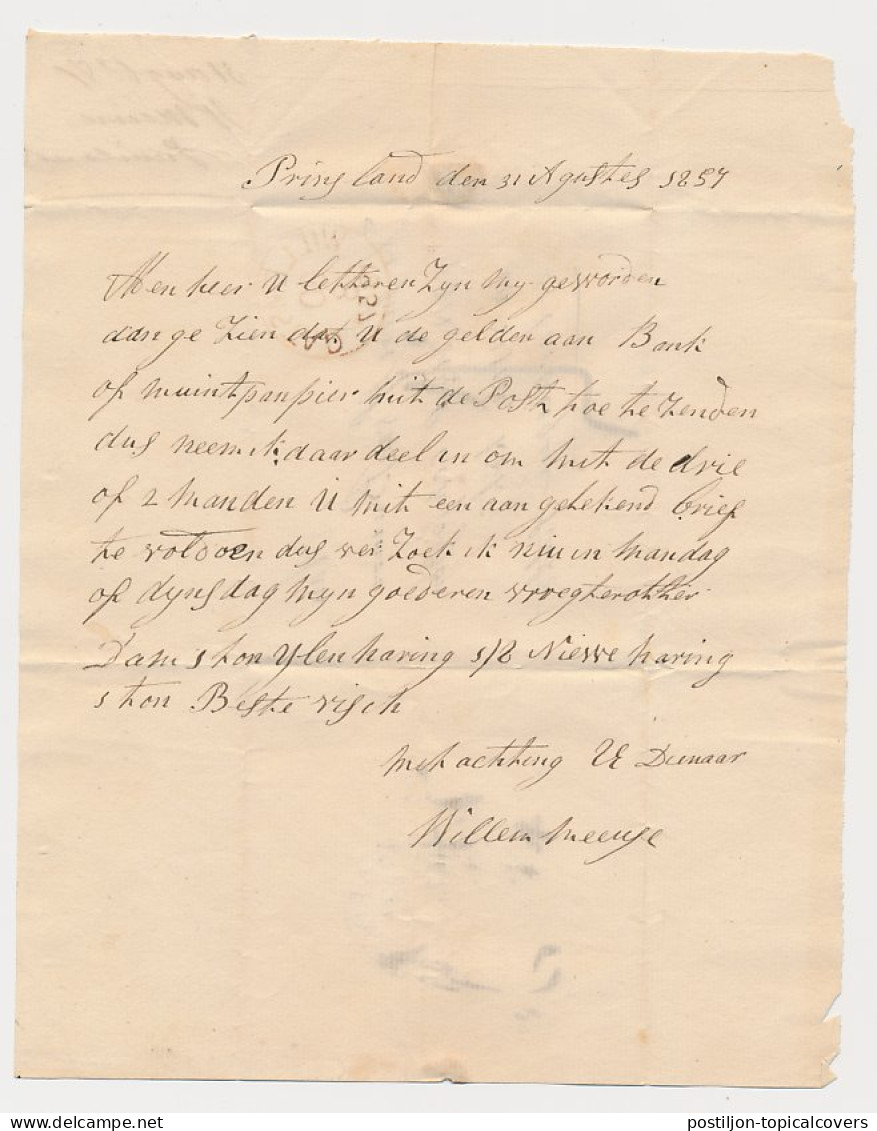 Prinsland den 31 Agustes 1857
Menheer U letteren Zyn my geworden
aan ge Zien dat U de gelden aan Bank
of muintpanpier mit de Post toe te Zenden
dus neem ik daar deel in om mit de drie
of 2 manden U mit een aan getekend brief
te voldoen dus ver Zoek ik niu in mandag
of dynsdag myn goederen
Dam 1 ton Ylen haring 1/8 Niewe haring
1 ton Beste visch
met achting UE Dienaar
Willem Meeuse
postiljon-topicalcovers